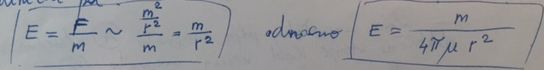 E = F/m ~ (m²/r²)/m = m/r² odnosno E = m/(4πμr²)